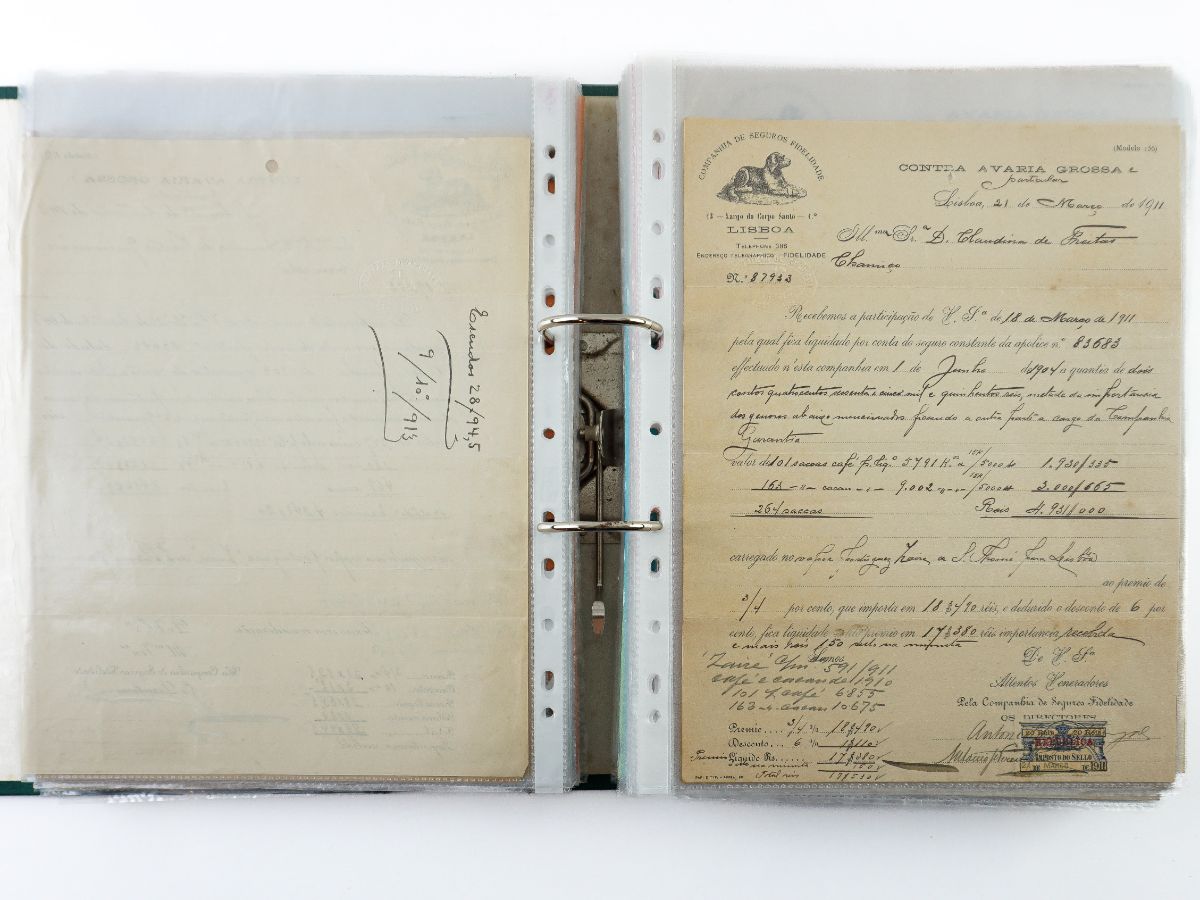 Escudos 28/94,5
9/10º/913
COMPANHIA DE SEGUROS FIDELIDADE
13 — Largo do Corpo Santo — 1.º
LISBOA
TELEPHONE 385
ENDEREÇO TELEGRAPHICO - FIDELIDADE
N.º 87933
(Modelo 156)
CONTRA AVARIA GROSSA e
particular
Lisboa, 21 de Março de 1911
Ill.ma Sr.a D. Claudina de Freitas
Chamiço
Recebemos a participação de V. S.a de 18 de Março de 1911
pela qual fica liquidado por conta do seguro constante da apolice n.º 83683
effectuado n'esta companhia em 1 de Junho de 1904 a quantia de dois
contos quatrocentos sessenta e cinco mil e quinhentos réis, metade da importancia
dos generos abaixo mencionados ficando a outra parte a cargo da Companhia
Garantia
valor de 101 saccas café p. liq.º 5791 K.os a /5000 1.930/335
163 - " - cacau - " - 9.002 - " - " - /5000 3.000/665
264 saccas Reis 4.931/000
carregado no vapor Portuguez Zaire de S. Thomé para Lisboa
ao premio de
3/4 por cento, que importa em 18$490 réis, e deduzido o desconto de 6 por
cento, fica liquidado premio em 17$380 réis importancia recebida
e mais reis 150 sello na minuta
"Zaire" 591/911
café e cacau de 1910
101 s. café 6855
163 - s. cacau 10675
De V. S.a
Attentos Veneradores
Pela Companhia de Seguros Fidelidade
OS DIRECTORES
Premio.... 3/4 % 18$490
Desconto... 6 % 1$110
Premio Liquido Rs...... 17$380
minuta
Total réis 17$530
20 REIS 20 REIS
REPUBLICA
IMPOSTO DO SELLO
DE MARÇO DE 1911